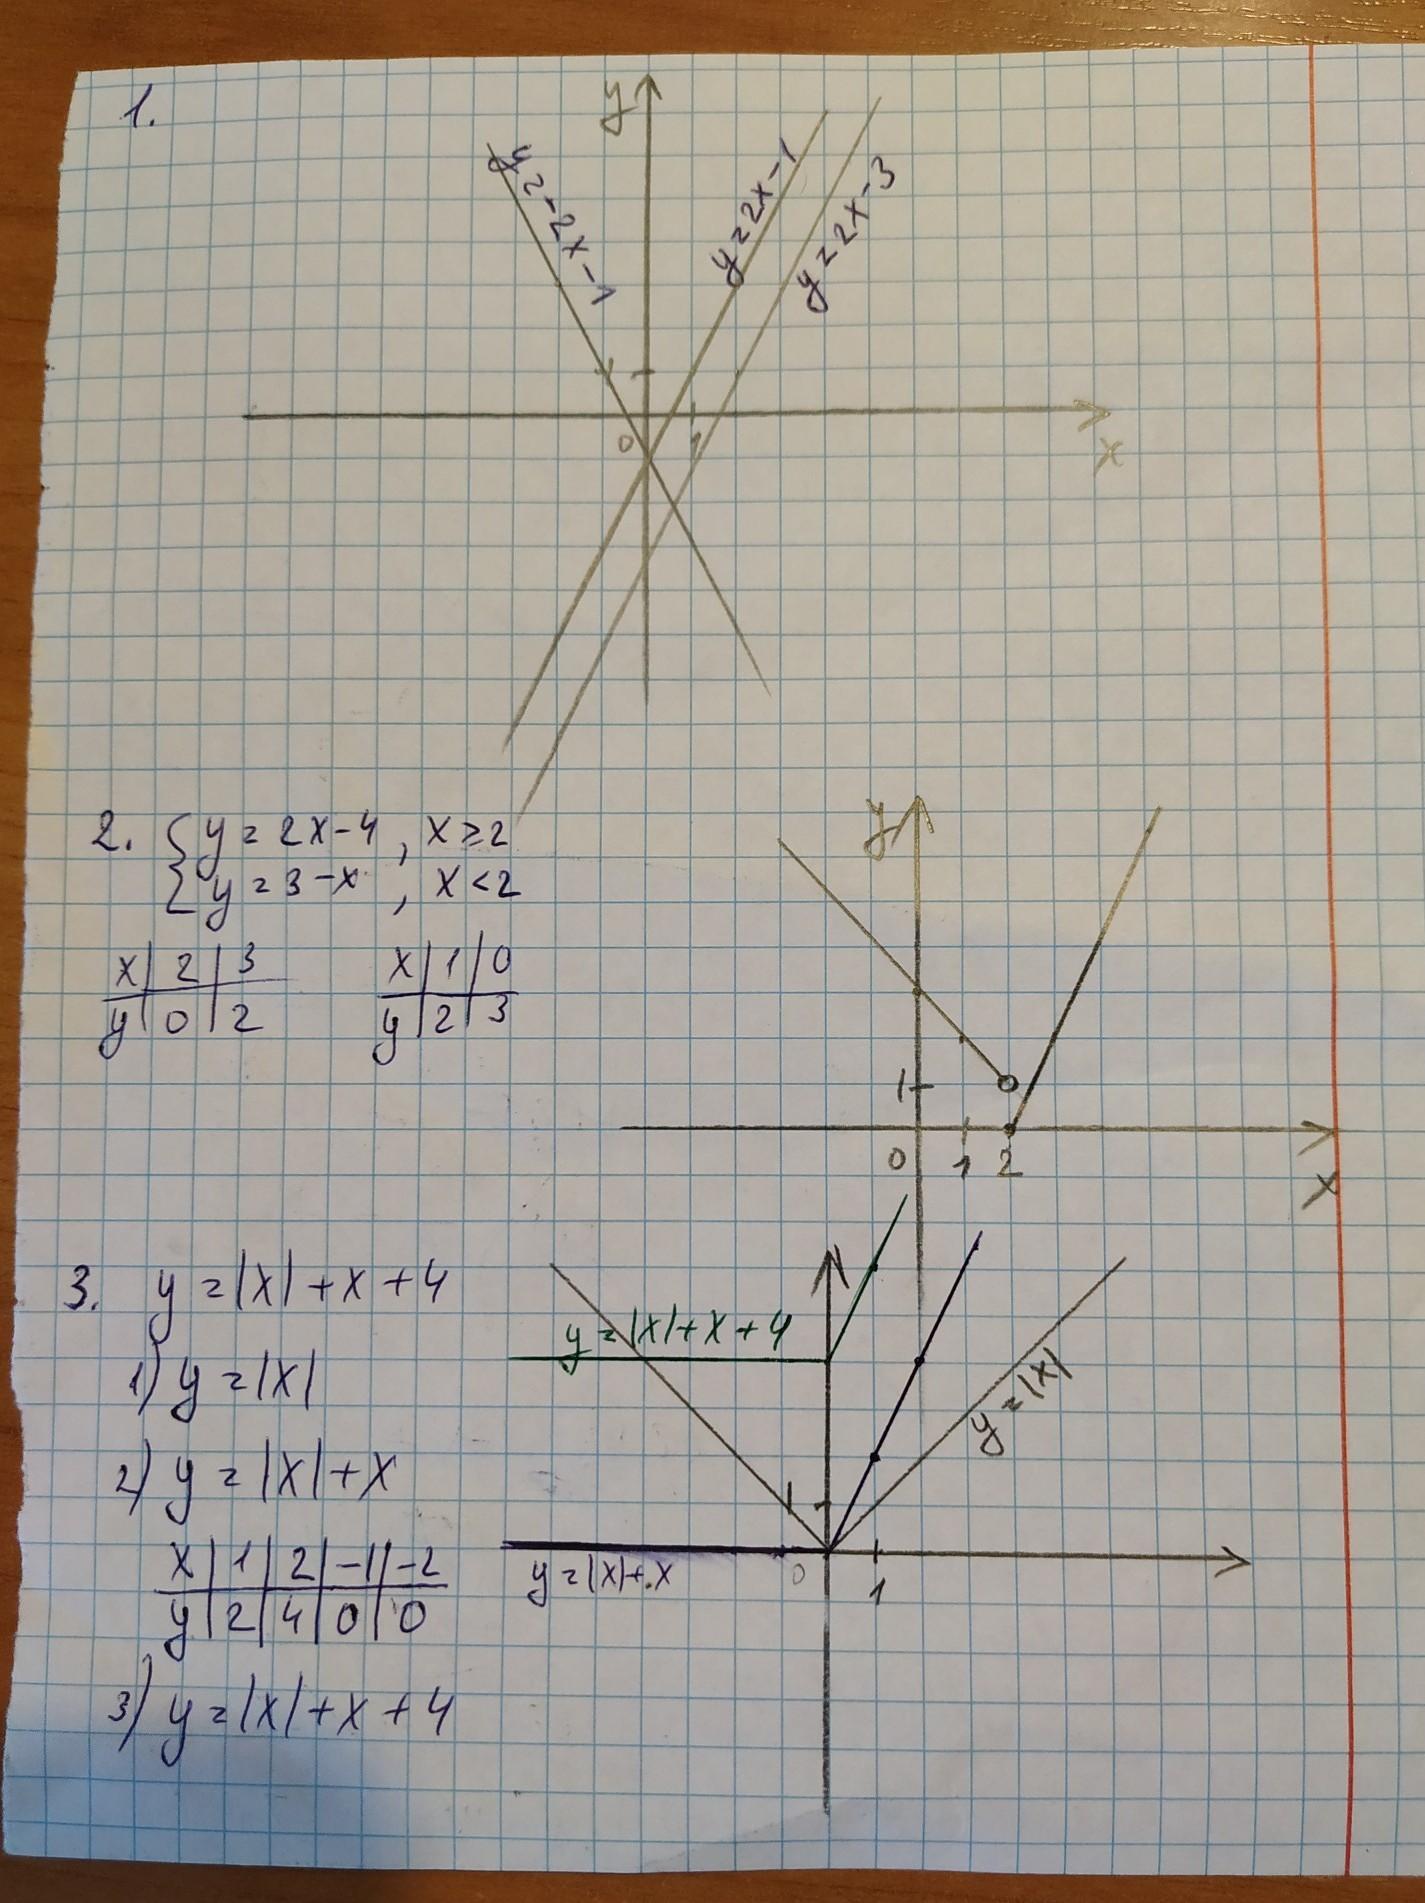 1.
y
y=-2x-1
y=2x-1
y=2x-3
0
1
x
2. { y=2x-4, x≥2
{ y=3-x, x<2
x | 2 | 3
y | 0 | 2
x | 1 | 0
y | 2 | 3
y
1
0 1 2
x
3. y=|x|+x+4
1) y=|x|
2) y=|x|+x
x | 1 | 2 | -1 | -2
y | 2 | 4 | 0 | 0
3) y=|x|+x+4
y=|x|+x+4
y=|x|
1
y=|x|+x
0
1